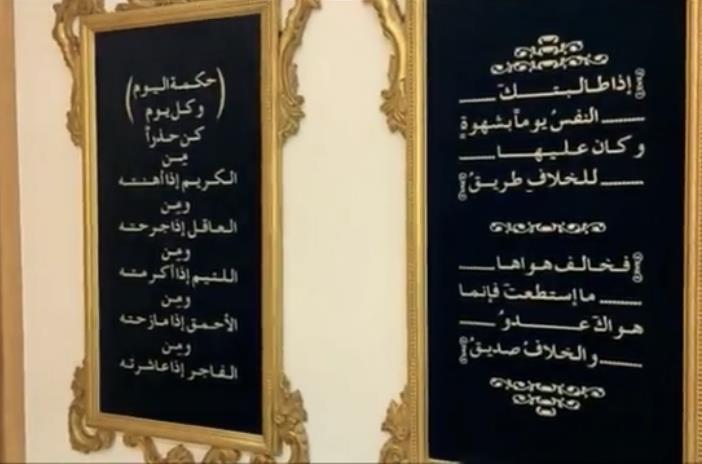 إذا طالبتك
النفسُ يوماً بشهوةٍ
وكان عليها
للخلافِ طريقُ
فخالف هواها
ما إستطعتَ فإنما
هواكَ عدوُ
والخلافُ صديقُ
(حكمة اليوم
وكل يوم)
كن حذراً
مِن
الكريم إذا أهنته
ومِن
العاقل إذا جرحته
ومِن
اللئيم إذا أكرمته
ومِن
الأحمق إذا مازحته
ومِن
الفاجر إذا عاشرته